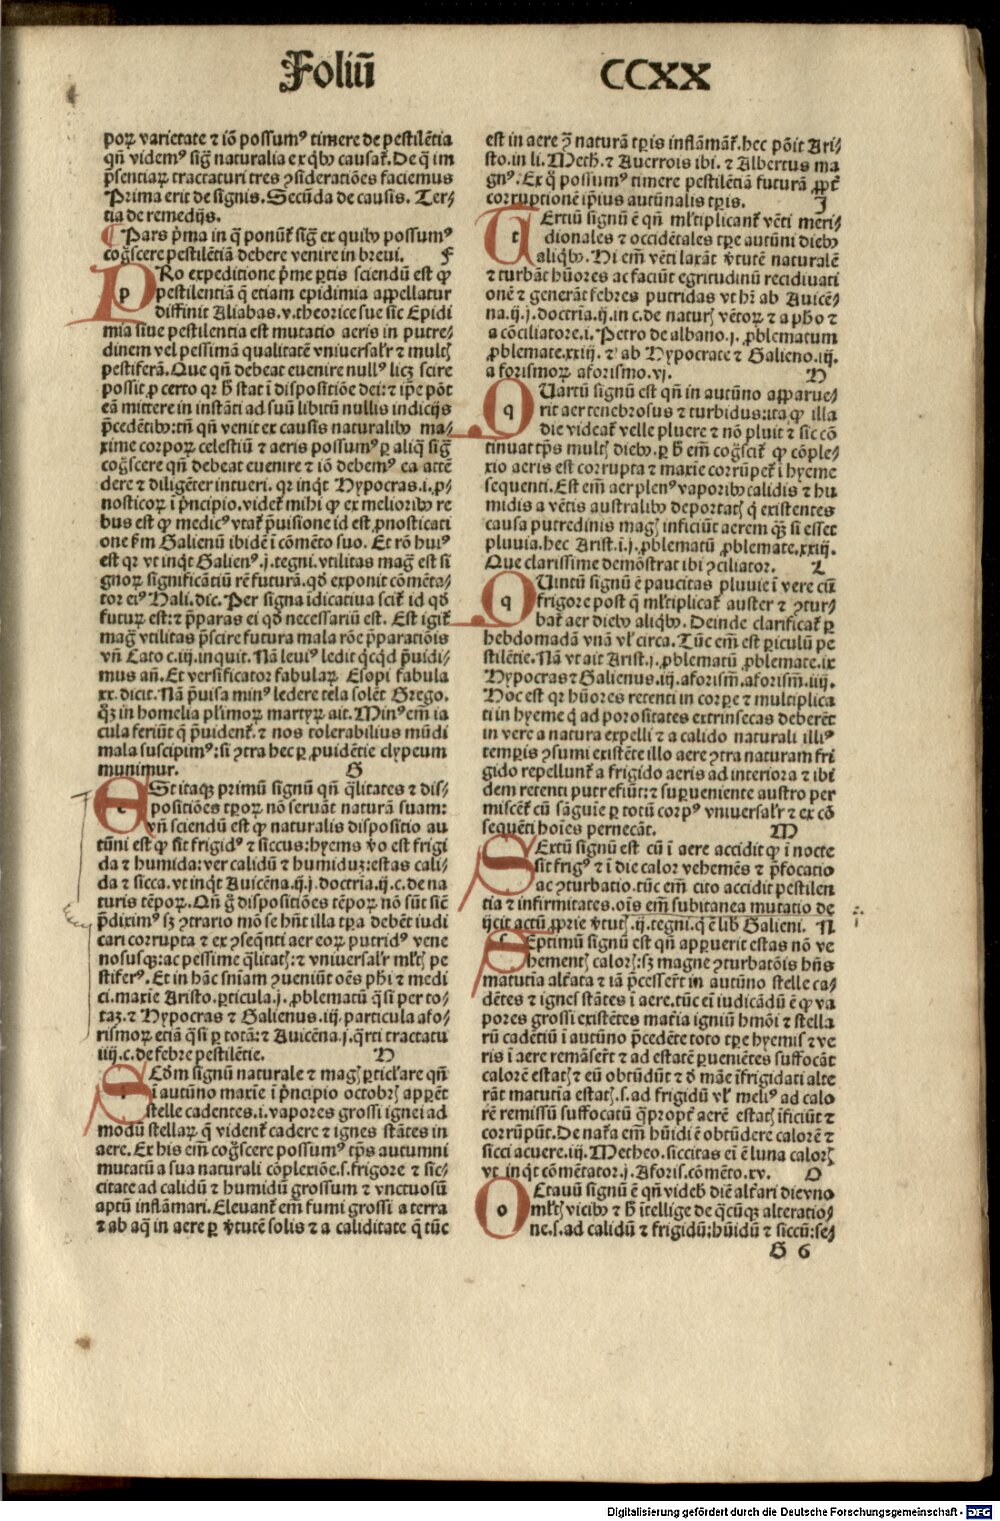 Foliũ CCXX
poꝝ varietate ⁊ iõ possumꝰ timere de pestilẽtia
qñ videmꝰ sig̃ naturalia ex qͥbꝰ causant̃. De q̃ im
p̃sentiaꝝ tractaturi tres ꝯsideratiões faciemus
Prima erit de signis. Secũda de causis. Ter-
tia de remedijs.
¶ Pars p̃ma in q̃ ponũt̃ sig̃ ex quibꝰ possumꝰ
cog̃scere pestilẽtiã debere venire in breui. F
PRo expeditione p̃me ꝑtis sciendũ est ꝙ
pestilentiã q̃ etiam epidimia appellatur
diffinit Aliabas. v. theorice sue sic Epidi
mia siue pestilentia est mutatio aeris in putre-
dinem vel pessimã qualitatẽ vniuersalr̃ ⁊ multꝭ
pestiferã. Que qñ debeat euenire nullꝰ licꝫ scire
possit ꝓ certo qr h̃ stat ĩ dispositiõe dei: ⁊ ip̃e põt
eã mittere in instãti ad suũ libitũ nullis indicijs
p̃cedẽtibꝰ: tñ qñ venit ex causis naturalibꝰ ma-
xime corpoꝝ celestiũ ⁊ aeris possumꝰ ꝑ aliq̃ sig̃
cog̃scere qñ debeat euenire ⁊ iõ debemꝰ ea attẽ
dere ⁊ diligẽter intueri. qr inqͥt Hypocras. i. ꝓ-
nosticoꝝ ĩ p̃ncipio. videt̃ mihi ꝙ ex melioribꝰ re
bus est ꝙ medicꝰ vtat̃ p̃uisione id est ꝓnosticati
one ẜm Galienũ ibidẽ ĩ cõmẽto suo. Et rõ huiꝰ
est qr vt inqͥt Galienꝰ. j. tegni. vtilitas mag̃ est si
gnoꝝ significãtiũ rẽ futurã. qd̃ exponit cõmẽta-
tor eiꝰ Hali. dic. Per signa idicatiua scit̃ id qd̃
futuꝝ est: ⁊ p̃paras ei qd̃ necessariũ est. Est igit̃
mag̃ vtilitas p̃scire futura mala rõe p̃paratiõis
vñ Cato c. iij. inquit. Nã leuiꝰ ledit qͥcqͥd p̃uidi-
mus añ. Et versificator fabulaꝝ Esopi fabula
xx. dicit. Nã p̃uisa minꝰ ledere tela solẽt Grego.
qͦꝫ in homelia pl̃imoꝝ martyꝝ ait. Minꝰ em̃ ia
cula feriũt q̃ p̃uident̃. ⁊ nos tolerabilius mũdi
mala suscipimꝰ: si ꝯtra hec ꝑ ꝓuidẽtie clypeum
munimur. G
ESt itaqꝫ primũ signũ qñ q̃litates ⁊ dis-
positiões tp̃oꝝ nõ seruãt naturã suam:
vñ sciendũ est ꝙ naturalis dispositio au
tũni est ꝙ sit frigidꝰ ⁊ siccus: hyems v̊o est frigi
da ⁊ humida: ver calidũ ⁊ humiduꝫ: estas cali-
da ⁊ sicca. vt inqͥt Auicẽna. ij. j. doctria. ij. c. de na
turis tẽpoꝝ. Qñ g̃ dispositiões tẽpoꝝ nõ sũt sicẽ
p̃diximꝰ sꝫ ꝯtrario mõ se hñt illa tp̃a debẽt iudi
cari corrupta ⁊ ex ꝯseq̃nti aer eoꝝ putridꝰ vene
nosusqꝫ: ac pessime q̃litatꝭ: ⁊ vniuersalr̃ ml̃tꝭ pe
stiferꝰ. Et in hãc sñiam ꝯueniũt oẽs phi ⁊ medi
ci. maxie Aristo. ꝑticula. j. ꝓblematũ q̃si per to-
taꝫ. ⁊ Hypocras ⁊ Galienus. iij. particula afo-
rismoꝝ etiã q̃si ꝑ totã: ⁊ Auicẽna. j. q̃rti tractatu
iiij. c. de febre pestilẽtie. H
SEcd̃m signũ naturale ⁊ magꝭ ꝑticl̃are qñ
ĩ autũno maxie ĩ p̃ncipio octobrꝭ apparẽt
stelle cadentes. i. vapores grossi ignei ad
modũ stellaꝝ q̃ vident̃ cadere ⁊ ignes stãtes in
aere. Ex his em̃ cog̃scere possumꝰ tp̃s autumni
mutatũ a sua naturali cõplexiõe. s. frigore ⁊ sic-
citate ad calidũ ⁊ humidũ grossum ⁊ vnctuosũ
aptũ inflãmari. Eleuant̃ em̃ fumi grossi a terra
⁊ ab aq̃ in aere ꝑ v̊tutẽ solis ⁊ a caliditate q̃ tũc
est in aere ꝯ̃ naturã tp̃ris inflãmãt̃. hec põit Ari-
sto. in li. Meth. ⁊ Auerrois ibi. ⁊ Albertus ma
gnꝰ. Ex q̊ possumꝰ timere pestilẽtiã futurã ꝓpt̃
corruptionẽ ip̃ius autũnalis tp̃ris. J
TErtiũ signũ ẽ qñ ml̃tiplicant̃ vẽti meri-
dionales ⁊ occidẽtales tp̃re autũni diebꝰ
aliqͥbꝰ. Hi em̃ vẽti laxãt v̊tutẽ naturalẽ
⁊ turbãt hũores ac faciũt egritudinũ recidiuati
onẽ ⁊ generãt febres putridas vt hr̃ ab Auicẽ-
na. ij. j. doctria. ij. in c. de naturꝭ vẽtoꝝ ⁊ a pho ⁊
a cõciliatore. i. Petro de albano. j. ꝓblematum
ꝓblemate. xxiij. ⁊ ab Hypocrate ⁊ Galieno. iij.
aforismoꝝ aforismo. vj. K
QUartũ signũ est qñ in autũno apparue-
rit aer tenebrosus ⁊ turbidus: ita ꝙ illa
die videat̃ velle pluere ⁊ nõ pluit ⁊ sic cõ
tinuat tp̃s multꝭ diebꝰ. ꝑ h̃ em̃ cog̃scit̃ ꝙ cõple-
xio aeris est corrupta ⁊ maxie corrũpet̃ ĩ hyeme
sequenti. Est em̃ aer plenꝰ vaporibꝰ calidis ⁊ hu
midis a vẽtis australibꝰ deportatꝭ q̇ existentes
causa putredinis magꝭ inficiũt aerem qͣꝫ si esset
pluuia. hec Arist. i. j. ꝓblematũ ꝓblemate. xxiij.
Que clarissime demõstrat ibi ꝯciliator. L
QUintũ signũ ẽ paucitas pluuie ĩ vere cũ
frigore post q̃ ml̃tiplicat̃ auster ⁊ ꝯtur-
bat̃ aer diebꝰ aliqͥbꝰ. Deinde clarificat̃ ꝑ
hebdomadã vnã vl̃ circa. Tũc em̃ est ꝑiculũ pe
stilẽtie. Nã vt ait Arist. j. ꝓblematũ ꝓblemate. ix
Hypocras ⁊ Galienus. iij. aforism̃. aforism̃. iiij.
Hoc est qr hũores retenti in corpe ⁊ multiplica
ti in hyeme q̇ ad porositates extrinsecas deberẽt
in vere a natura expelli ⁊ a calido naturali illiꝰ
temꝑis ꝯsumi existẽte illo aere ꝯtra naturam fri
gido repellunt̃ a frigido aeris ad interiora ⁊ ibi
dem retenti putrefiũt: ⁊ suꝑueniente austro per
miscẽt̃ cũ sãguie ꝑ totũ corpꝰ vniuersalr̃ ⁊ ex cõ
sequẽti hoĩes pernecãt. M
SExtũ signũ est cũ ĩ aere accidit ꝙ ĩ nocte
sit frigꝰ ⁊ ĩ die calor vehemẽs ⁊ p̃focatio
ac ꝯturbatio. tũc em̃ cito accidit pestilen
tia ⁊ infirmitates. oĩs em̃ subitanea mutatio de
ijcit actũ ꝓprie v̊tutꝭ. ij. tegni. q̃ ẽ lib̃ Galieni. N
SEptimũ signũ est qñ apꝑuerit estas nõ ve
hementꝭ calorꝭ: sꝫ magne ꝯturbatõis hñs
matutia alt̃ata ⁊ iã p̃cesser̃t in autũno stelle ca-
dẽtes ⁊ ignes stãtes ĩ aere. tũc eĩ iudicãdũ ẽ ꝙ va
pores grossi existẽtes mat̃ia igniũ hmõi ⁊ stella
rũ cadẽtiũ ĩ autũno p̃cedẽte toto tp̃re hyemis ⁊ ve
ris ĩ aere remãser̃t ⁊ ad estatẽ ꝑueniẽtes suffocãt
calorẽ estatꝭ ⁊ eũ obtũdũt ⁊ õ mãe ĩfrigidati alte
rãt matutia estatꝭ. s. ad frigidũ vl̃ meliꝰ ad calo
rẽ remissũ suffocatũ q̃propt̃ aerẽ estatꝭ ĩficiũt ⁊
corrũpũt. De nat̃a em̃ hũidi ẽ obtũdere calorẽ ⁊
sicci acuere. iij. Metheo. siccitas ei ẽ luna calorꝭ
vt inqͥt cõmẽtator. j. Aforis. cõmẽto. xv. O
OCtauũ signũ ẽ qñ videbꝭ diẽ alt̃ari die vno
ml̃tꝭ vicibꝰ ⁊ h̃ ĩtellige de q̃cũqꝫ alteratio-
ne. s. ad calidũ ⁊ frigidũ: hũidũ ⁊ siccũ: se-
G 6
Digitalisierung gefördert durch die Deutsche Forschungsgemeinschaft - DFG